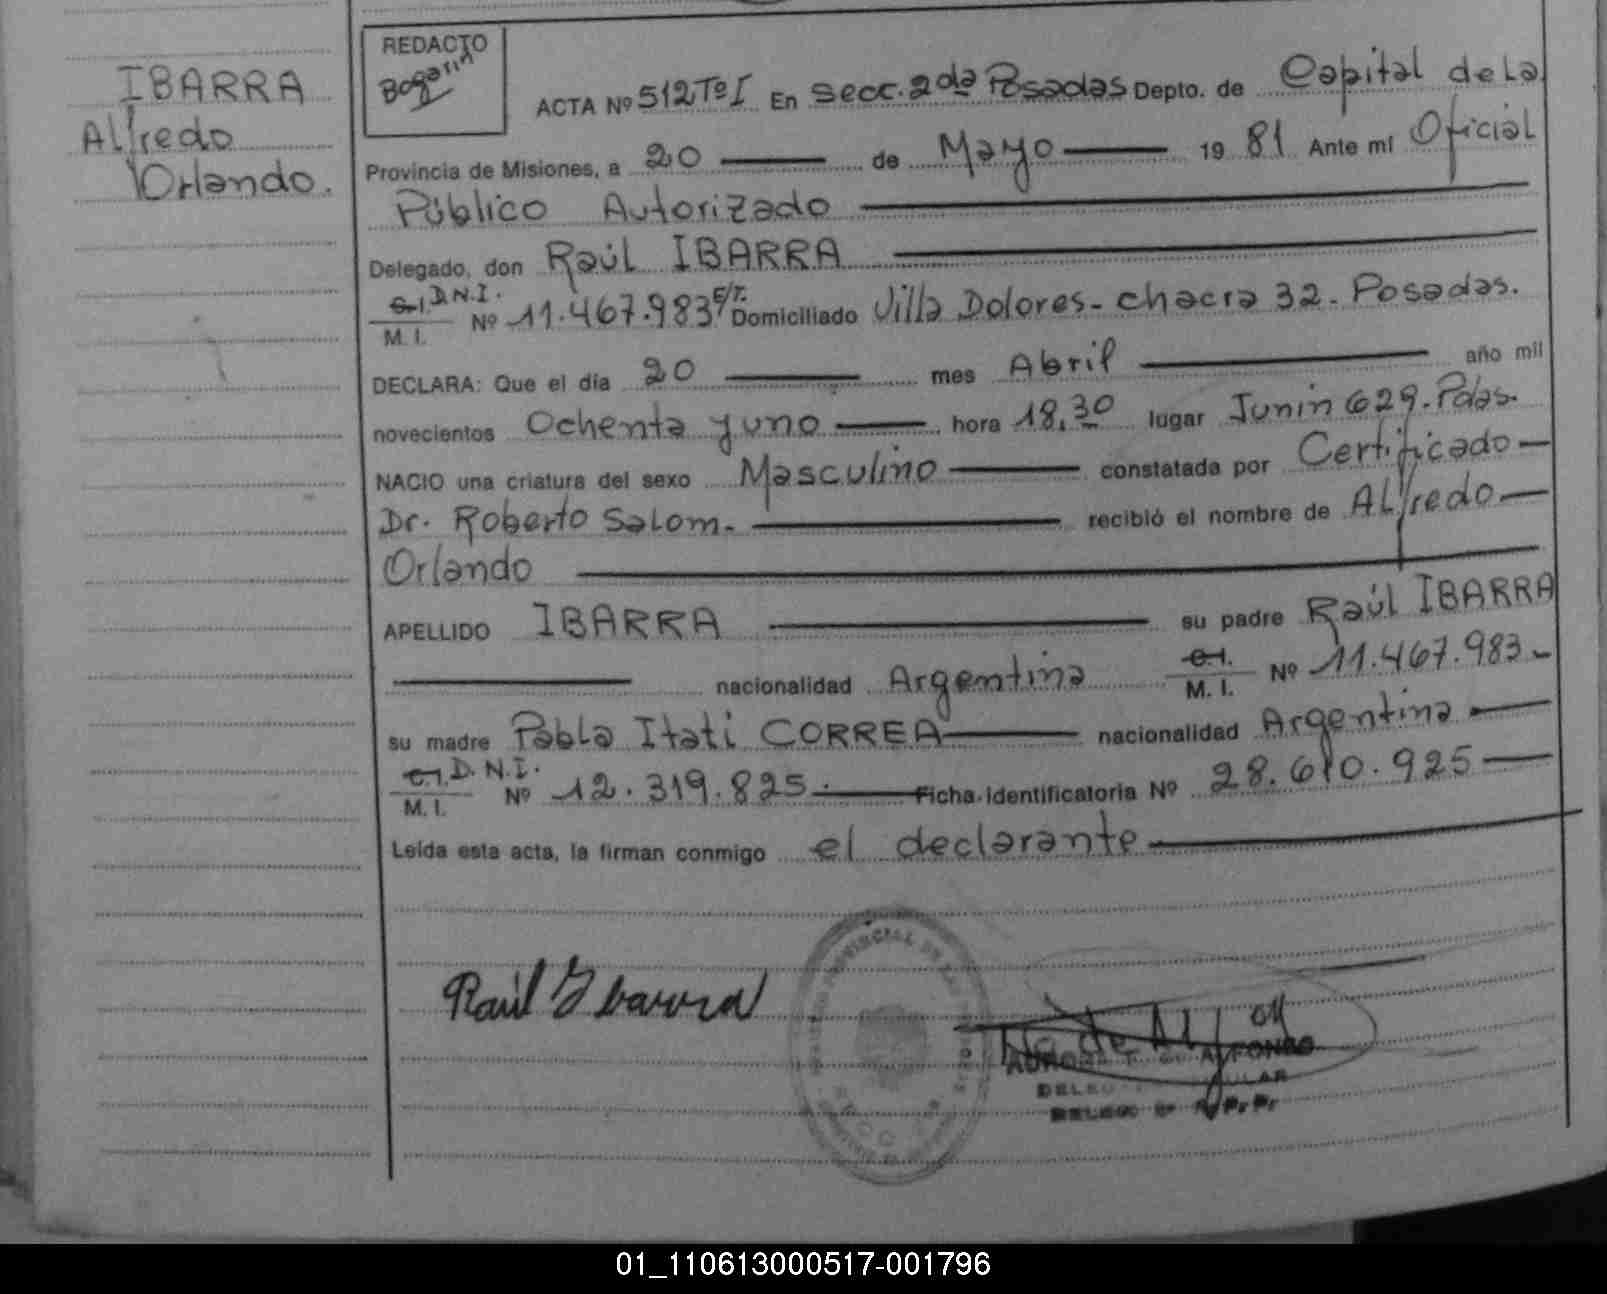 IBARRA
Alfredo
Orlando.
REDACTO
Bogarin
ACTA Nº 512 Tº I En Secc. 2da Posadas Depto. de Capital de La
Provincia de Misiones, a 20 de Mayo 19 81 Ante mí Oficial
Público Autorizado
Delegado, don Raúl IBARRA
C.I. D.N.I.
M. I. Nº 11.467.983 E/T. Domiciliado Villa Dolores - chacra 32 - Posadas.
DECLARA: Que el día 20 mes Abril año mil
novecientos Ochenta y uno hora 18,30 lugar Junin 629. Pdas.
NACIO una criatura del sexo Masculino constatada por Certificado
Dr. Roberto Salom. recibió el nombre de ALfredo
Orlando
APELLIDO IBARRA su padre Raúl IBARRA
nacionalidad Argentina C.I. M. I. Nº 11.467.983
su madre Pabla Itati CORREA nacionalidad Argentina
C.I. D.N.I.
M. I. Nº 12.319.825. Ficha Identificatoria Nº 28.610.925
Leída esta acta, la firman conmigo el declarante
Raúl Ibarra
01_110613000517-001796